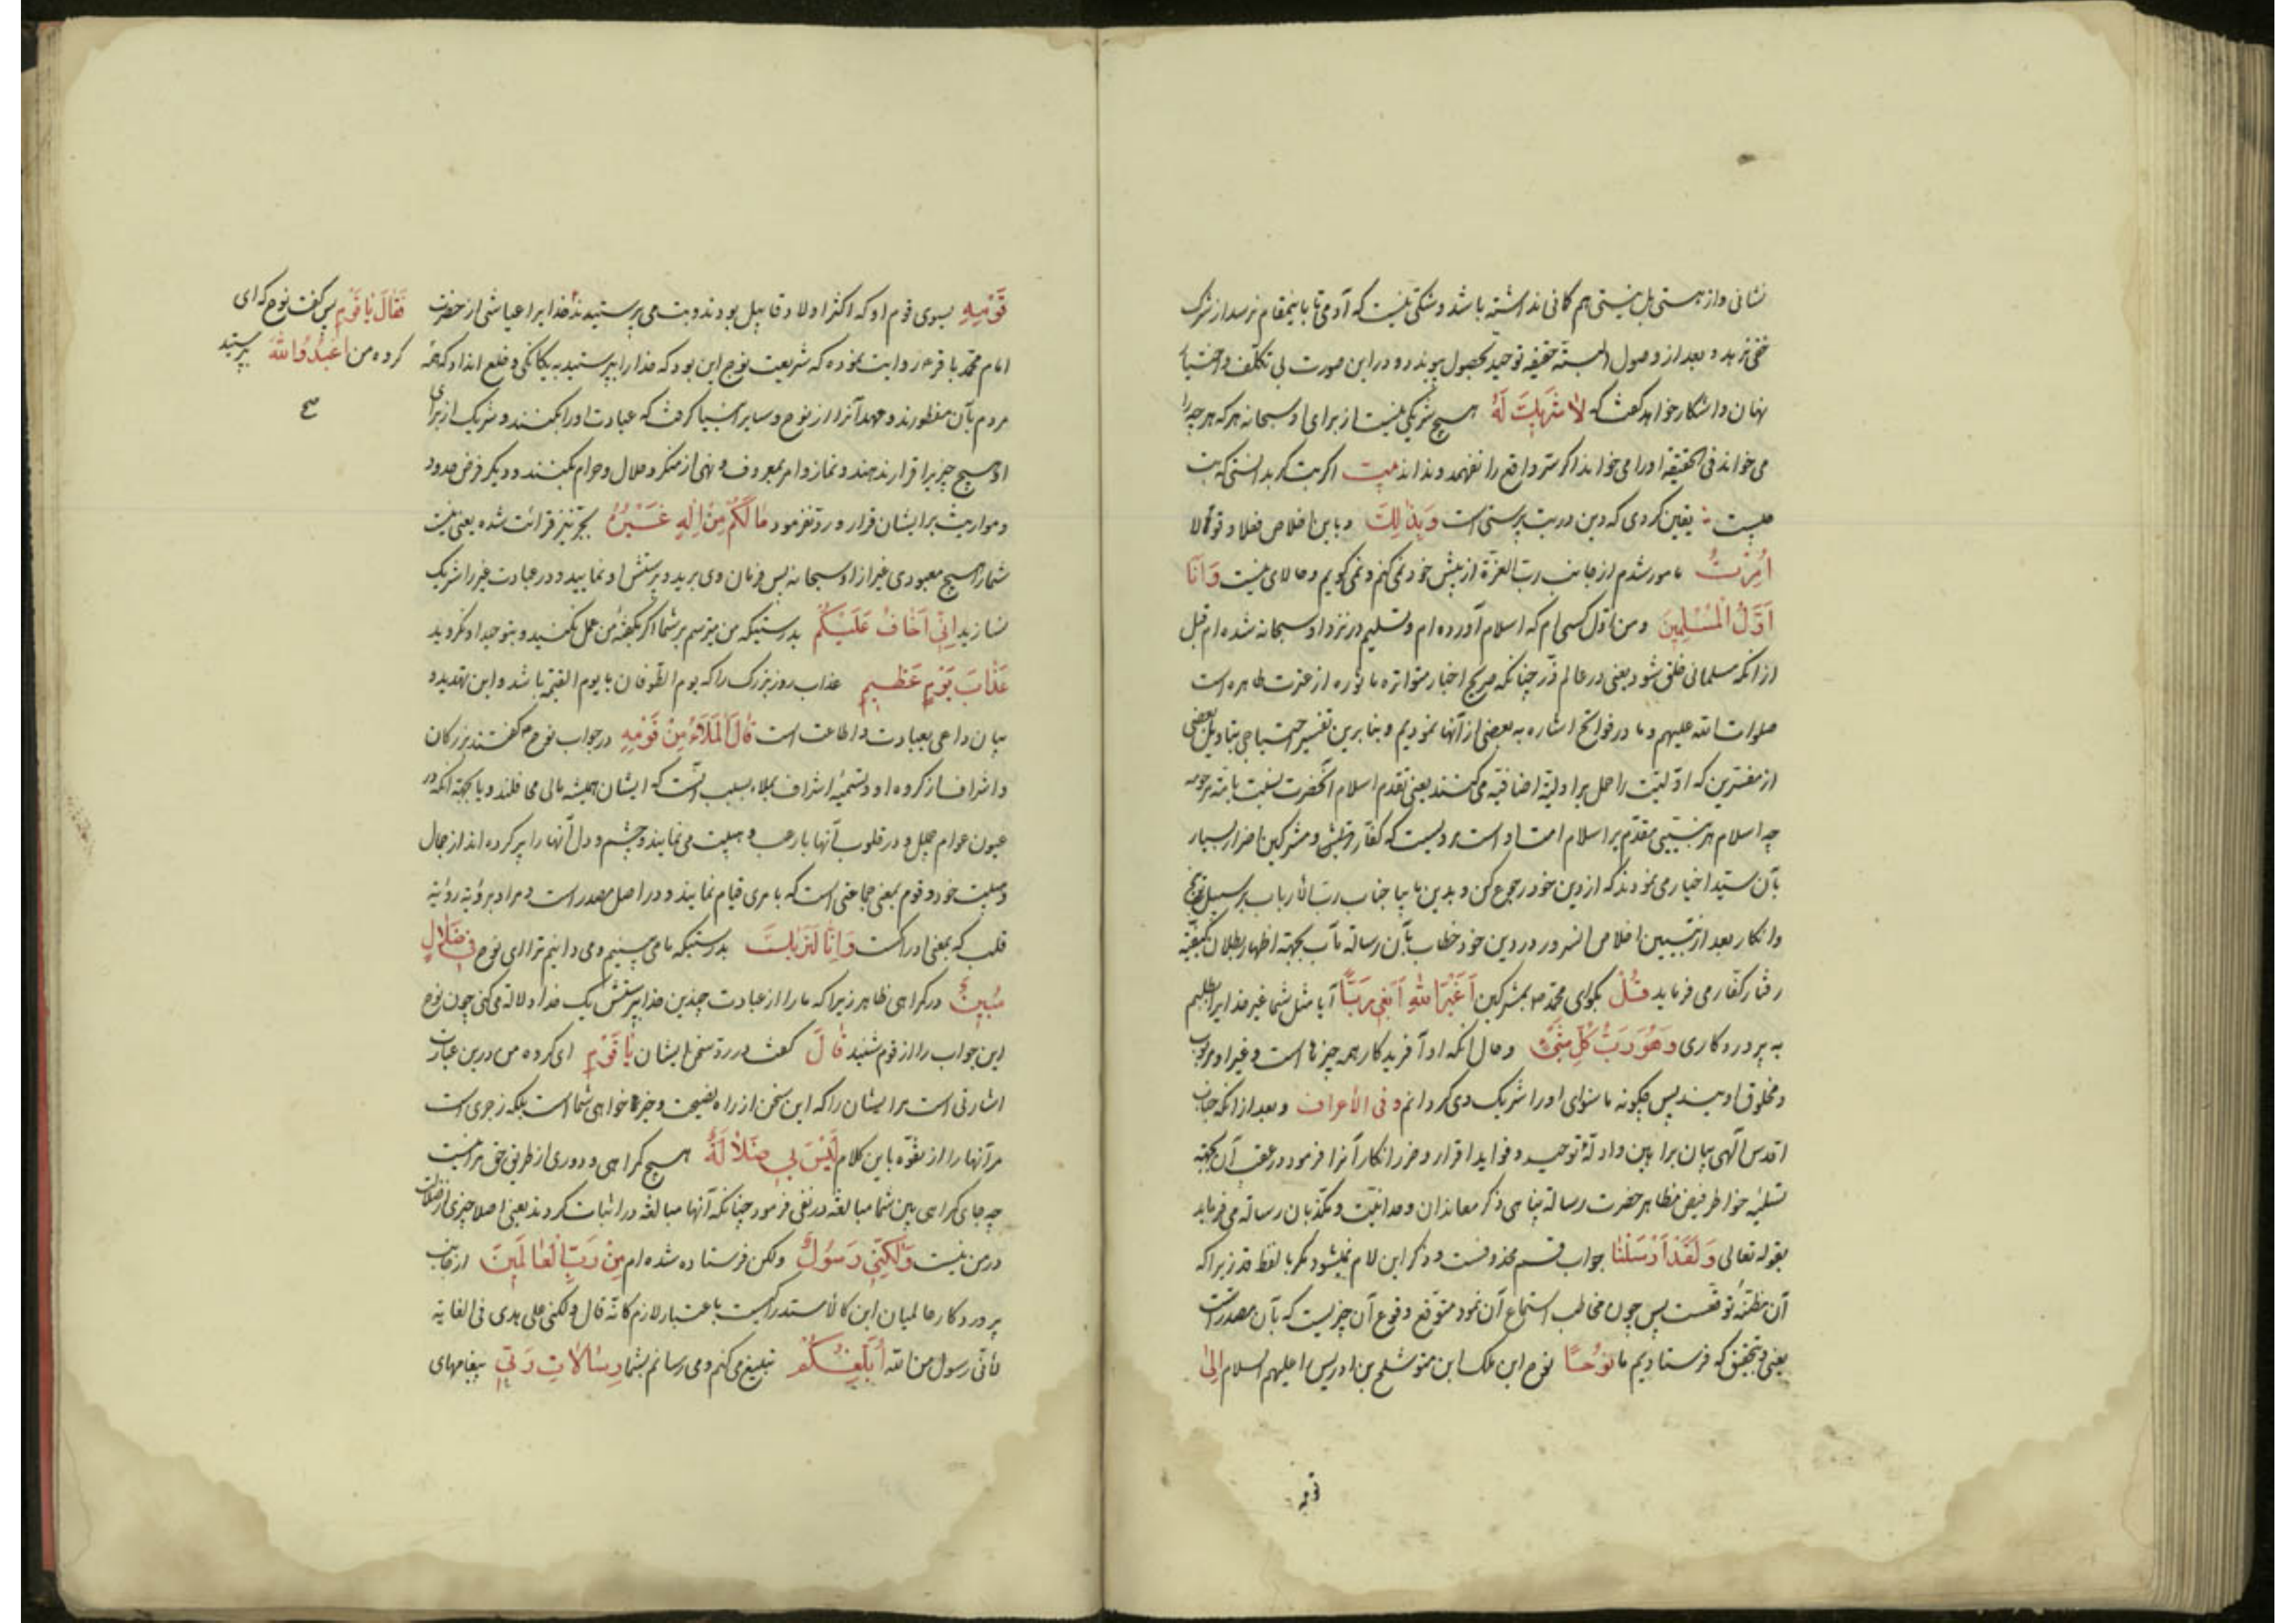 نشانی و از هستی بل نیستی هم کانی نداشته باشد و شکی نیست که آدمی تا باینمقام نرسد از شرک
خفی نرهد و بعد از وصول البته حقیقه توحید بحصول پیوندد و در این صورت بی تکلف و احتیاط
نهان و آشکار خواهد گفت که لَا شَرِيكَ لَهُ هیچ شریکی نیست از برای او سبحانه هر که هر چه را
می خواند فی الحقیقه او را می خواند اگر سرّ واقع را نفهمد و نداند بیت اگر بت گر بدانستی که بت
چیست یقین کردی که دین در بت پرستی است وَبِذٰلِكَ و باین اخلاص فعلا و قولا
اُمِرْتُ مامور شدم از جانب رب العزة از پیش خود نمی کنم و نمی گویم و حالای نیست وَاَنَا
اَوَّلُ الْمُسْلِمِينَ و من اول کسی ام که اسلام آورده ام و تسلیم در نزد او سبحانه شده ام قبل
از آنکه مسلمانی خلق شود یعنی در عالم ذر چنانکه صریح اخبار متواتره ماثوره از عترت طاهره است
صلوات الله علیهم و ما در فواتح اشاره به بعضی از آنها نمودیم و بنابرین تفسیر احتیاجی بتاویل بعضی
از مفسرین که اولیت را حمل بر اولیة اضافیه می کنند یعنی تقدم اسلام آنحضرت نسبت بامته مرحومه
چه اسلام هر نبیی مقدم بر اسلام امت او است مرویست که کفار قریش و مشرکین اضرار بسیار
بآن سید اخیار می نمودند که از دین خود رجوع کن و بدین ما بیا جناب رب الارباب بر سبیل توبیخ
و انکار بعد از تبیین اخلاص السرور در دین خود خطاب بآن رسالة مآب بجهته اظهار بطلان کیفیته
رفتار کفار می فرماید قُلْ بگو ای محمد ص بمشرکین اَغَيْرَ اللهِ اَبْغِي رَبًّا آیا مثل شما غیر خدا یرا طلبم
به پروردکاری وَهُوَ رَبُّ كُلِّ شَيْءٍ و حال آنکه او آفریدکار همه چیزها است و غیر او مربوب
و مخلوق اویند پس چکونه ماسوای او را شریک وی کردانم و فی الأعراف و بعد از آنکه جناب
اقدس الهی بیان براهین و ادله توحید و فواید اقرار و ضرر انکار آنرا فرمود در عقب آن بجهته
تسلیه خواطر فیض مظاهر حضرت رسالة پناهی ذکر معاندان وحدانیت و مکذبان رسالة می فرماید
بقوله تعالی وَلَقَدْ اَرْسَلْنَا جواب قسم محذوفست و ذکر این لام نمیشود مکر با لفظ قد زیرا که
آن مظنه توقعست پس چون مخاطب استماع آن نمود متوقع وقوع آن چیزیست که بآن مصدر است
یعنی و بتحقیق که فرستادیم ما نُوحًا نوح ابن ملک ابن متوشلح بن ادریس علیهم السلام اِلٰى
قومه
قَوْمِهِ بسوی قوم او که اکثر اولاد قابیل بودند و بت می پرستیدند نه خدا یرا عیاشی از حضرت
امام محمد باقر ع روایت نموده که شریعت نوح این بود که خدا را بپرستید به یکانکی و خلع انداد که همه
مردم بآن مفطورند و عهد آنرا از نوح و سایر انبیا گرفت که عبادت او را بکنند و شریک از برای
او هیچ چیز یرا قرار ندهند و نماز و امر بمعروف و نهی از منکر و حلال و حرام بکنند و دیکر فرض حدود
و مواریث بر ایشان قرار و رد نفرمود مَا لَكُمْ مِنْ اِلٰهٍ غَيْرُهُ بجر نیز قرائت شده یعنی نیست
شما را هیچ معبودی غیر از او سبحانه پس فرمان وی برید و پرستش او نمایید و در عبادت غیر را شریک
نسازید اِنِّي اَخَافُ عَلَيْكُمْ بدرستیکه من میترسم بر شما اکر بکفته من عمل نکنید و بتوحید او نکروید
عَذَابَ يَوْمٍ عَظِيمٍ عذاب روز بزرک را که یوم الطوفان یا یوم القیمة باشد و این تهدید و
بیان داعی بعبادت و اطاعت است قَالَ الْمَلَأُ مِنْ قَوْمِهِ در جواب نوح ع گفتند بزرکان
و اشراف از کروه او و تسمیه اشراف بملاء بسبب آنست که ایشان همیشه مالی محافلند و یا بجهته آنکه در
عیون عوام جلیل و در قلوب آنها با رعب و هیبت می نمایند و چشم و دل آنها را پر کرده اند از جمال
و هیبت خود و قوم بمعنی جماعتی است که بامری قیام نمایند و در اصل مصدر است و مراد برؤیة رؤیة
قلب که بمعنی ادراکست وَاِنَّا لَنَرٰيكَ بدرستیکه ما می بینیم و می دانیم ترا ای نوح فِي ضَلَالٍ
مُبِينٍ در کمراهی ظاهر زیرا که ما را از عبادت چندین خدا بپرستش یک خدا دلالة می کنی چون نوح
این جواب را از قوم شنید قَالَ گفت در رد سخن ایشان يَا قَوْمِ ای کروه من درین عبارت
اشارتی است مر ایشان را که این سخن از راه نصیحت و خیر خواهی شما است بلکه زجری است
مر آنها را از تفوه باین کلام لَيْسَ بِي ضَلَالَةٌ هیچ کمراهی و دوری از طریق حق مرا نیست
چه جای کمراهی بین شما مبالغه در نفی فرمود چنانکه آنها مبالغه در اثبات کردند یعنی اصلا چیزی از ضلالت
در من نیست وَلٰكِنِّي رَسُولٌ ولکن فرستاده شده ام مِنْ رَبِّ الْعَالَمِينَ از جانب
پروردکار عالمیان این کالاستدراکست باعتبار لازم کانه قال ولکنی علی هدی فی الغایة
لأنی رسول من الله اُبَلِّغُكُمْ تبلیغ می کنم و می رسانم بشما رِسَالَاتِ رَبِّي پیغامهای
فَقَالَ يَا قَوْمِ پس گفت نوح که ای
کروه من اعْبُدُوا اللهَ بپرستید